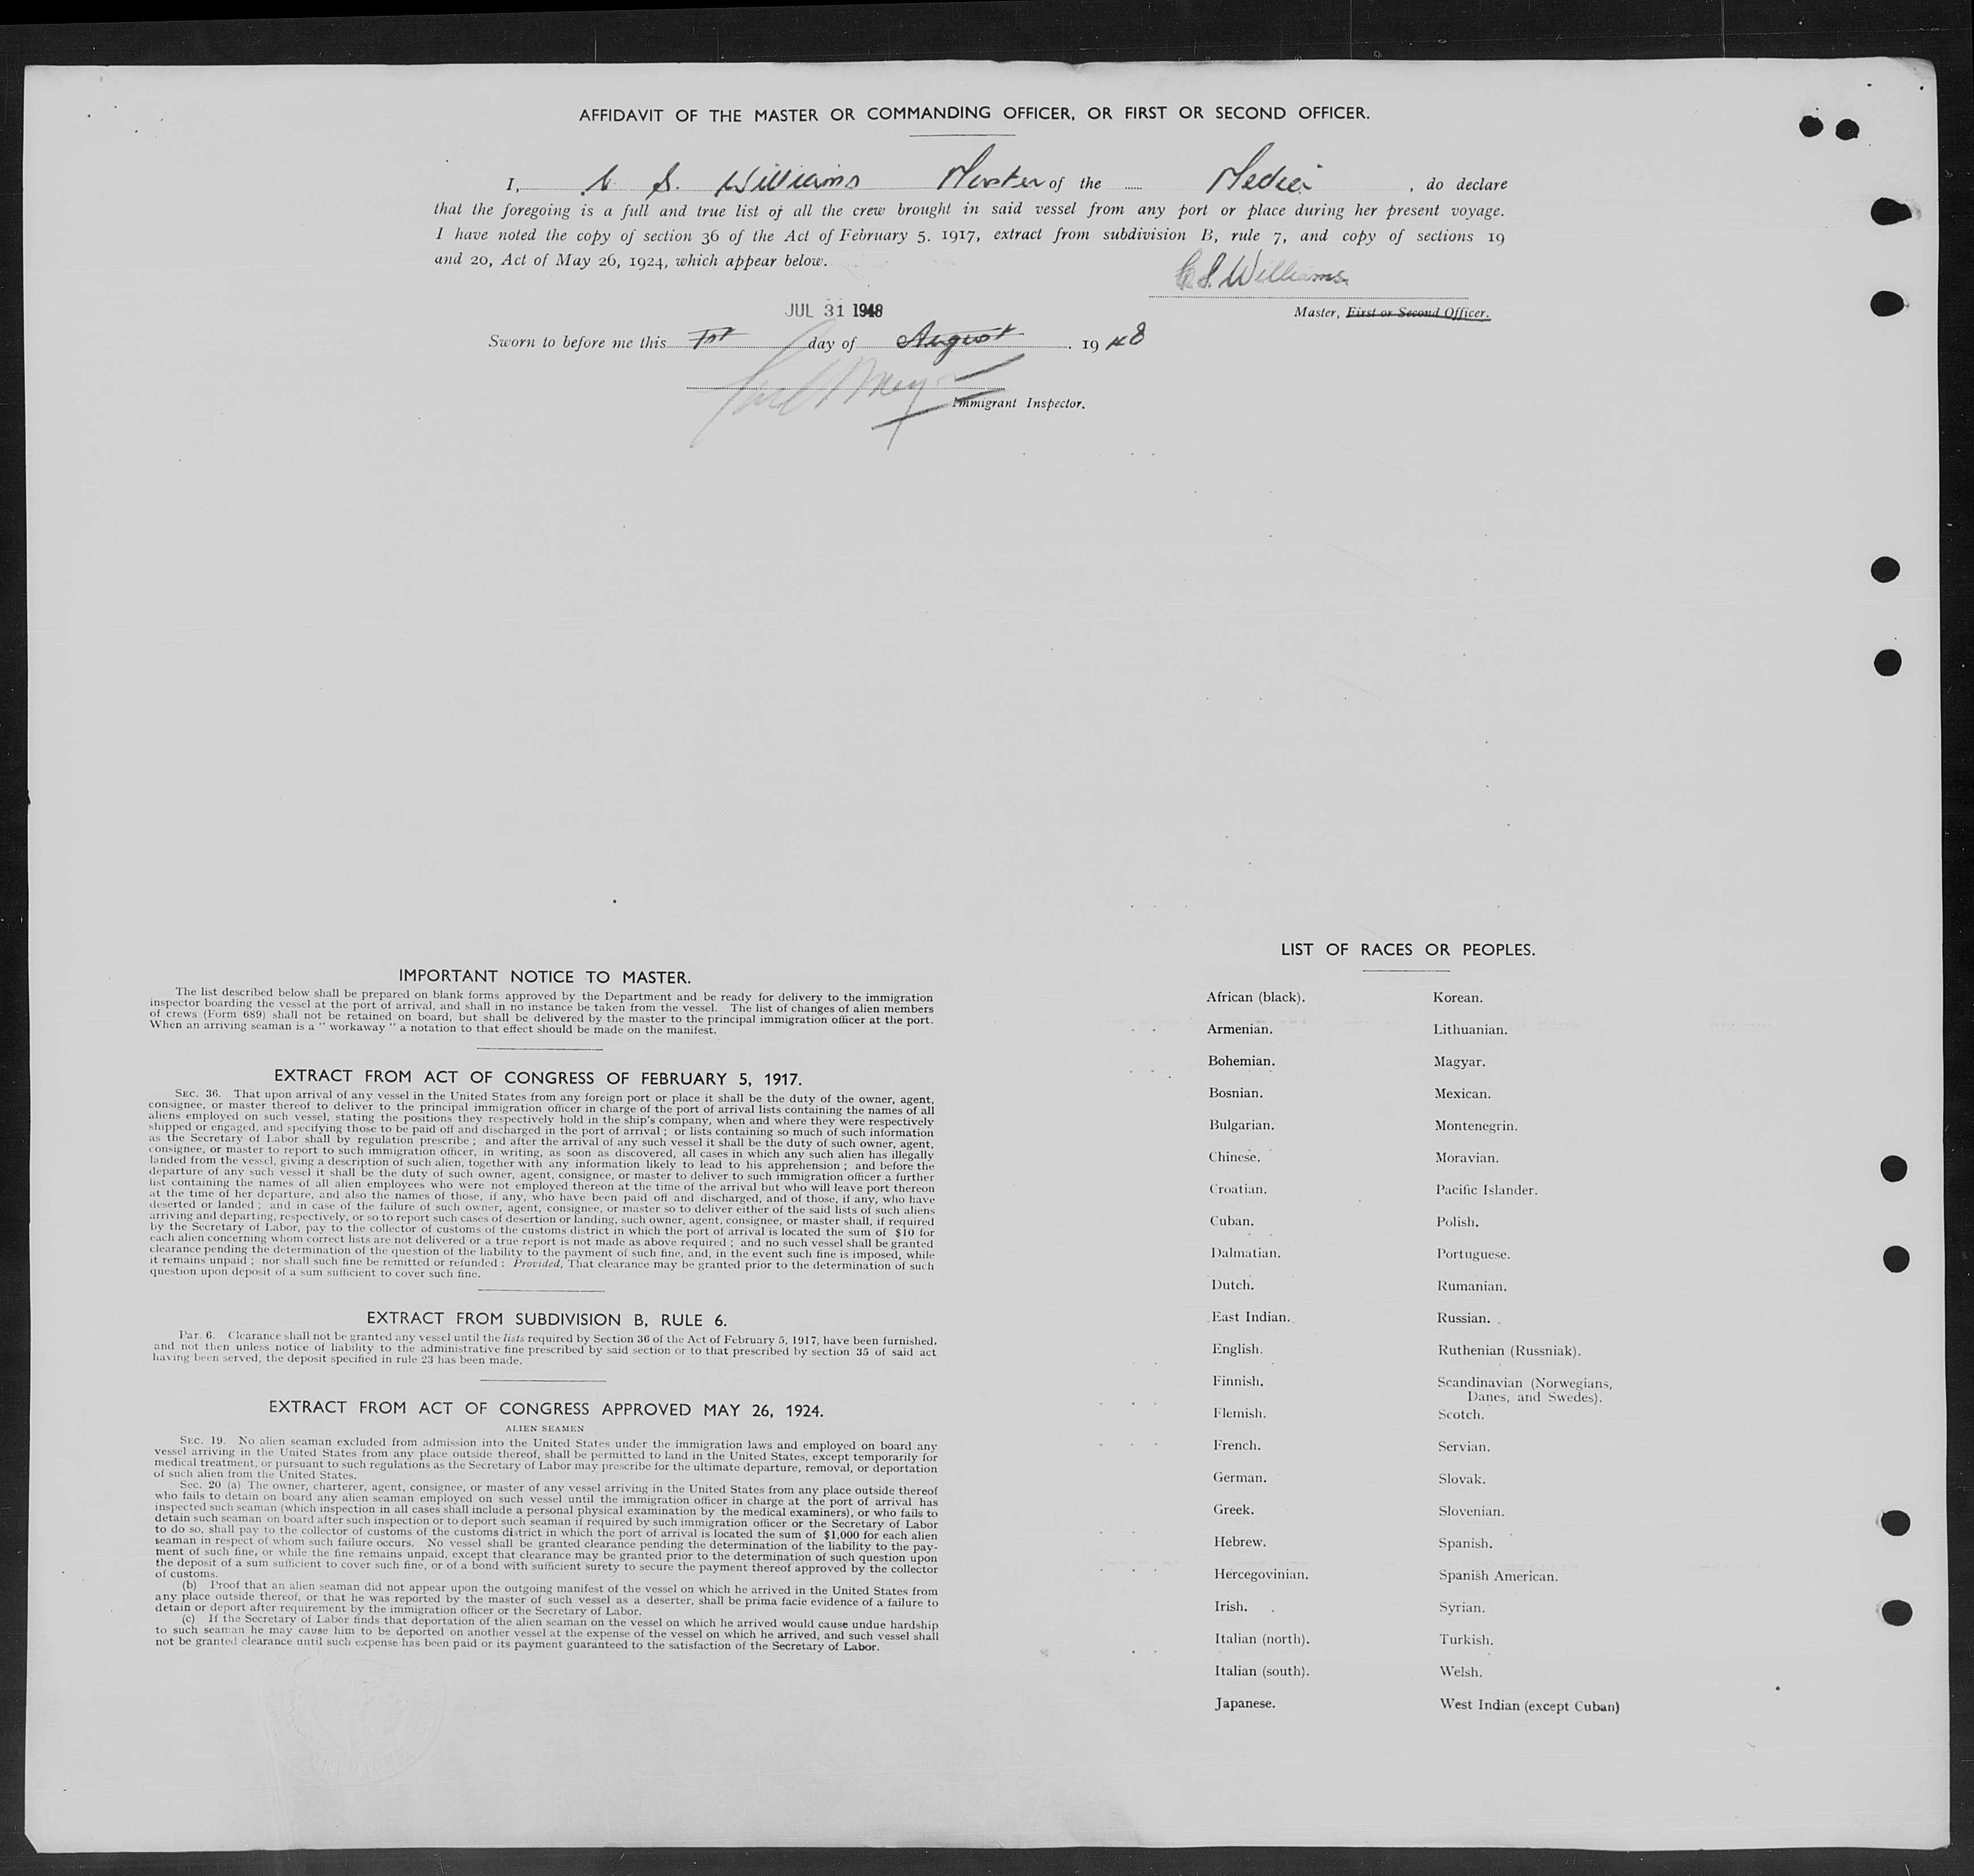 AFFIDAVIT OF THE MASTER OR COMMANDING OFFICER, OR FIRST OR SECOND OFFICER.
I, S. Williams Master of the Media, do declare
that the foregoing is a full and true list of all the crew brought in said vessel from any port or place during her present voyage.
I have noted the copy of section 36 of the Act of February 5. 1917, extract from subdivision B, rule 7, and copy of sections 19
and 20, Act of May 26, 1924, which appear below.
S. Williams
JUL 31 1948
Master, First or Second Officer.
Sworn to before me this 1st day of August . 19 48
Immigrant Inspector.
IMPORTANT NOTICE TO MASTER.
The list described below shall be prepared on blank forms approved by the Department and be ready for delivery to the immigration
inspector boarding the vessel at the port of arrival, and shall in no instance be taken from the vessel. The list of changes of alien members
of crews (Form 689) shall not be retained on board, but shall be delivered by the master to the principal immigration officer at the port.
When an arriving seaman is a " workaway " a notation to that effect should be made on the manifest.
EXTRACT FROM ACT OF CONGRESS OF FEBRUARY 5, 1917.
SEC. 36. That upon arrival of any vessel in the United States from any foreign port or place it shall be the duty of the owner, agent,
consignee, or master thereof to deliver to the principal immigration officer in charge of the port of arrival lists containing the names of all
aliens employed on such vessel, stating the positions they respectively hold in the ship's company, when and where they were respectively
shipped or engaged, and specifying those to be paid off and discharged in the port of arrival ; or lists containing so much of such information
as the Secretary of Labor shall by regulation prescribe ; and after the arrival of any such vessel it shall be the duty of such owner, agent,
consignee, or master to report to such immigration officer, in writing, as soon as discovered, all cases in which any such alien has illegally
landed from the vessel, giving a description of such alien, together with any information likely to lead to his apprehension ; and before the
departure of any such vessel it shall be the duty of such owner, agent, consignee, or master to deliver to such immigration officer a further
list containing the names of all alien employees who were not employed thereon at the time of the arrival but who will leave port thereon
at the time of her departure, and also the names of those, if any, who have been paid off and discharged, and of those, if any, who have
deserted or landed ; and in case of the failure of such owner, agent, consignee, or master so to deliver either of the said lists of such aliens
arriving and departing, respectively, or so to report such cases of desertion or landing, such owner, agent, consignee, or master shall, if required
by the Secretary of Labor, pay to the collector of customs of the customs district in which the port of arrival is located the sum of $10 for
each alien concerning whom correct lists are not delivered or a true report is not made as above required ; and no such vessel shall be granted
clearance pending the determination of the question of the liability to the payment of such fine, and, in the event such fine is imposed, while
it remains unpaid ; nor shall such fine be remitted or refunded : Provided, That clearance may be granted prior to the determination of such
question upon deposit of a sum sufficient to cover such fine.
EXTRACT FROM SUBDIVISION B, RULE 6.
Par. 6. Clearance shall not be granted any vessel until the lists required by Section 36 of the Act of February 5, 1917, have been furnished,
and not then unless notice of liability to the administrative fine prescribed by said section or to that prescribed by section 35 of said act
having been served, the deposit specified in rule 23 has been made.
EXTRACT FROM ACT OF CONGRESS APPROVED MAY 26, 1924.
ALIEN SEAMEN
SEC. 19. No alien seaman excluded from admission into the United States under the immigration laws and employed on board any
vessel arriving in the United States from any place outside thereof, shall be permitted to land in the United States, except temporarily for
medical treatment, or pursuant to such regulations as the Secretary of Labor may prescribe for the ultimate departure, removal, or deportation
of such alien from the United States.
Sec. 20 (a) The owner, charterer, agent, consignee, or master of any vessel arriving in the United States from any place outside thereof
who fails to detain on board any alien seaman employed on such vessel until the immigration officer in charge at the port of arrival has
inspected such seaman (which inspection in all cases shall include a personal physical examination by the medical examiners), or who fails to
detain such seaman on board after such inspection or to deport such seaman if required by such immigration officer or the Secretary of Labor
to do so, shall pay to the collector of customs of the customs district in which the port of arrival is located the sum of $1,000 for each alien
seaman in respect of whom such failure occurs. No vessel shall be granted clearance pending the determination of the liability to the pay-
ment of such fine, or while the fine remains unpaid, except that clearance may be granted prior to the determination of such question upon
the deposit of a sum sufficient to cover such fine, or of a bond with sufficient surety to secure the payment thereof approved by the collector
of customs.
(b) Proof that an alien seaman did not appear upon the outgoing manifest of the vessel on which he arrived in the United States from
any place outside thereof, or that he was reported by the master of such vessel as a deserter, shall be prima facie evidence of a failure to
detain or deport after requirement by the immigration officer or the Secretary of Labor.
(c) If the Secretary of Labor finds that deportation of the alien seaman on the vessel on which he arrived would cause undue hardship
to such seaman he may cause him to be deported on another vessel at the expense of the vessel on which he arrived, and such vessel shall
not be granted clearance until such expense has been paid or its payment guaranteed to the satisfaction of the Secretary of Labor.
LIST OF RACES OR PEOPLES.
African (black). Korean.
Armenian. Lithuanian.
Bohemian. Magyar.
Bosnian. Mexican.
Bulgarian. Montenegrin.
Chinese. Moravian.
Croatian. Pacific Islander.
Cuban. Polish.
Dalmatian. Portuguese.
Dutch. Rumanian.
East Indian. Russian.
English. Ruthenian (Russniak).
Finnish. Scandinavian (Norwegians,
Danes, and Swedes).
Flemish. Scotch.
French. Servian.
German. Slovak.
Greek. Slovenian.
Hebrew. Spanish.
Hercegovinian. Spanish American.
Irish. Syrian.
Italian (north). Turkish.
Italian (south). Welsh.
Japanese. West Indian (except Cuban)